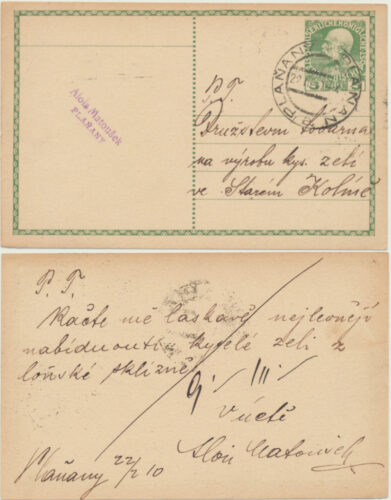 Alois Matoušek
PLAŇANY
PLAŇANY
P. T.
Družstevní továrna
na výrobu kys. zelí
ve Starém Kolíně
P. T.
Račte mě laskavě nejlevněji
nabídnouti kyselé zelí z
loňské sklizně
V úctě
Alois Matoušek
Plaňany 22/2 10